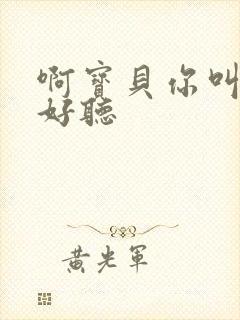 啊寶貝你叫
好聽
黃光軍